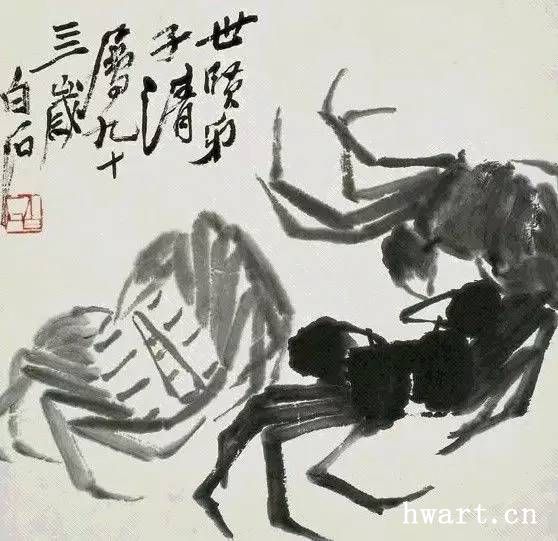 世贤弟
子清
属九十
三歲
白石
hwart.cn